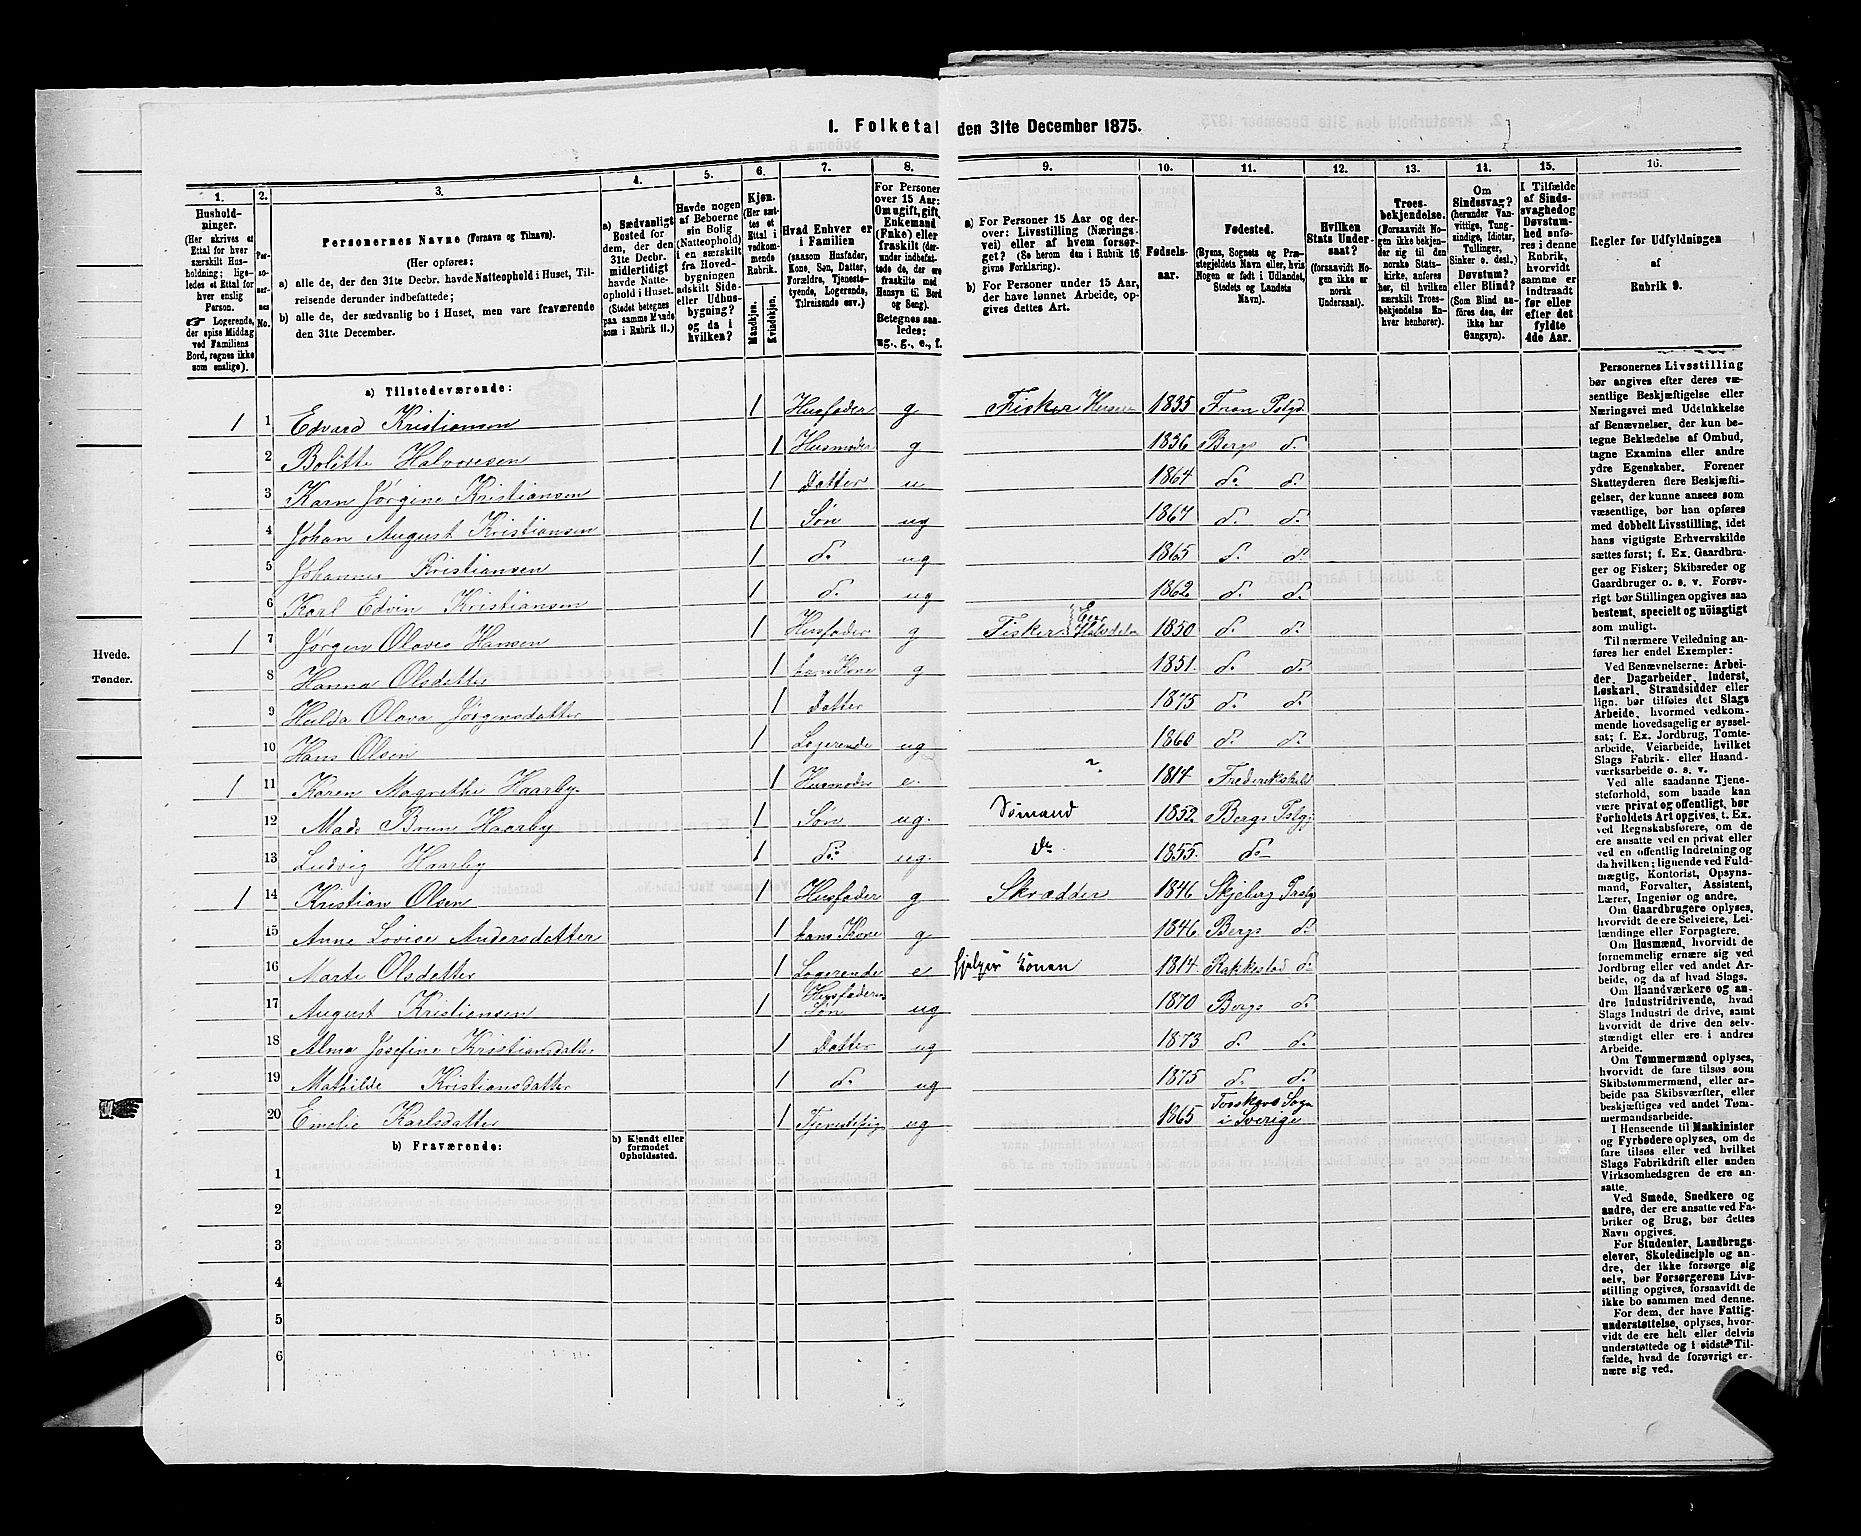 I. Folketal den 31te December 1875.
1. 2. 3. 4. 5. 6. 7. 8. 9. 10. 11. 12. 13. 14. 15. 16.
Hushold-
ninger.
(Her skrives et
Ettal for hver
særskilt Hus-
holdning; lige-
ledes et Ettal for
hver enslig
Person.
☞ Logerende,
der spise Middag
ved Familiens
Bord, regnes ikke
som enslige).
Per-
so-
ner-
nes
No.
Personernes Navne (Fornavn og Tilnavn).
(Her opføres:
a) alle de, der den 31te Decbr. havde Natteophold i Huset, Til-
reisende derunder indbefattede;
b) alle de, der sædvanlig bo i Huset, men vare fraværende
den 31te December.
a) Sædvanligt
Bosted for
dem, der den
31te Decbr.
midlertidigt
havde Natte-
ophold i Huset.
(Stedet betegnes
paa samme Maade
som i Rubrik 11.)
Havde nogen
af Beboerne
sin Bolig
(Natteophold)
i en særskilt
fra Hoved-
bygningen
adskilt Side-
eller Udhus-
bygning?
og da i
hvilken?
Kjøn.
(Her sæt-
tes et
Ettal i
vedkom-
mende
Rubrik.
Mandkjøn.
Kvindekjøn.
Hvad Enhver er
i Familien
(saasom Husfader,
Kone, Søn, Datter,
Forældre, Tjeneste-
tyende, Logerende,
Tilreisende osv.)
For Personer
over 15 Aar:
Om ugift, gift,
Enkemand
(Enke) eller
fraskilt (der-
under indbefat-
tede de, der ere
fraskilte med
Hensyn til Bord
og Seng).
Betegnes saa-
ledes:
ug., g., e., f.
a) For Personer 15 Aar og der-
over: Livsstilling (Nærings-
vei) eller af hvem forsør-
get? (Se herom den i Rubrik 16
givne Forklaring).
b) For Personer under 15 Aar,
der have lønnet Arbeide, op-
gives dettes Art.
Fødsels-
aar.
Fødested.
(Byens, Sognets og Præ-
stegjeldets Navn eller, hvis
Nogen er født i Udlandet,
Stedets og Landets
Navn).
Hvilken
Stats Under-
saat?
(forsaavidt No-
gen ikke er
norsk
Undersaat).
Troes-
bekjendelse.
(Forsaavidt No-
gen ikke bekjen-
der sig til den
norske Stats-
kirke, anføres
her, til hvilken
særskilt Troes-
bekjendelse En-
hver henhører).
Om
Sindssvag?
(herunder Van-
vittige, Tung-
sindige, Idioter,
Tullinger,
Sinker o. desl.)
Døvstum?
eller Blind?
(Som Blind an-
føres den, der
ikke har
Gangsyn).
I Tilfælde
af Sinds-
svaghed og
Døvstum-
hed anføres
i denne
Rubrik,
hvorvidt
samme er
indtraadt
før eller
efter det
fyldte
4de Aar.
Regler for Udfyldningen
af
Rubrik 9.
a) Tilstedeværende:
1 1 Edvard Kristiansen 1 Husfader g Fisker 1835
2 Bolette Halvorsen 1 Husmoder g 1836 Bergs d.
3 Karn Jørgine Kristiansen 1 Datter u 1864 d. d.
4 Johan August Kristiansen 1 Søn ug 1867 d. d.
5 Johannes Kristiansen 1 d. ug 1865 d. d.
6 Karl Edvin Kristiansen 1 d. ug 1862 d. d.
1 7 Jørgen Olaves Hansen 1 Husfader g Fisker Eier 1850 d. d.
8 Hanna Olsdatter 1 hans Kone g 1851 d. d.
9 Hulda Olava Jørgensdatter 1 Datter 1875 d. d.
10 Hans Olsen 1 Logerende ug 1860 d. d.
1 11 Karen Magrethe Haarby 1 Husmoder e. 1814 Frederikshald
12 Mads Brun Haarby 1 Søn ug. Sömand 1852 Bergs Pstgj
13 Ludvig Haarby 1 d. ug. Do 1855 d.
1 14 Kristian Olsen 1 Husfader g Skrædder 1846 Skjeberg Pstgj
15 Anne Lovise Andersdatter 1 hans Kone g 1846 Bergs d.
16 Marte Olsdatter 1 Logerende e 1814 Rakkestad d.
17 August Kristiansen 1 Husfaderens Søn ug 1870 Bergs d.
18 Alma Josefine Kristiansdatter 1 Datter ug 1873 d. d.
19 Mathilde Kristiansdatter 1 d. ug 1875 d. d.
20 Emelie Karlsdatter 1 Tjenestepig ug 1865 Sogn i Sverige
b) Fraværende:
b) Kjendt eller
formodet
Opholdssted.
1
2
3
4
5
6
Personernes Livsstilling
bør angives efter deres væ-
sentlige Beskjæftigelse eller
Næringsvei med Udelukkelse
af Benævnelser, der kun be-
tegne Beklædelse af Ombud,
tagne Examina eller andre
ydre Egenskaber. Forener
Skatteyderen flere Beskjæfti-
gelser, der kunne ansees som
væsentlige, bør han opføres
med dobbelt Livsstilling, idet
hans vigtigste Erhvervskilde
sættes først; f. Ex. Gaardbru-
ger og Fisker; Skibsreder og
Gaardbruger o. s. v. Forøv-
rigt bør Stillingen opgives saa
bestemt, specielt og nöiagtigt
som muligt.
Til nærmere Veiledning an-
føres her endel Exempler:
Ved Benævnelserne: Arbei-
der, Dagarbeider, Inderst,
Løskarl, Strandsidder eller
lign. bør tilføies det Slags
Arbeide, hvormed vedkom-
mende hovedsagelig er syssel-
sat; f. Ex. Jordbrug, Tomte-
arbeide, Veiarbeide, hvilket
Slags Fabrik- eller Haand-
værksarbeide o. s. v.
Ved alle saadanne Tjene-
steforhold, som baade kan
være privat og offentligt, bør
Forholdets Art opgives, t. Ex.
ved Regnskabsførere, om de
ere ansatte ved en privat eller
ved en offentlig Indretning og
da hvilken; lignende ved Fuld-
mægtig, Kontorist, Opsyns-
mand, Forvalter, Assistent,
Lærer, Ingeniør og andre.
Om Gaardbrugere oplyses,
hvorvidt de ere Selveiere, Lei-
lændinge eller Forpagtere.
Om Husmænd, hvorvidt de
fornemmelig ernære sig ved
Jordbrug eller ved andet Ar-
beide, og da af hvad Slags.
Om Haandværkere og an-
dre Industridrivende, hvad
Slags Industri de drive, samt
hvorvidt de drive den selv-
stændigt eller ere i andres
Arbeide.
Om Tømmermænd oplyses,
hvorvidt de fare tilsøs som
Skibstømmermænd, eller ar-
beide paa Skibsværfter, eller
beskjæftiges ved andet Tøm-
mermandsarbeide.
I Henseende til Maskinister
og Fyrbødere oplyses, om de
fare tilsøs eller ved hvilket
Slags Fabrikdrift eller anden
Virksomhedsgren de ere an-
satte.
Ved Smede, Snedkere og
andre, der ere ansatte ved Fa-
briker og Brug, bør dettes
Navn opgives.
For Studenter, Landbrugs-
elever, Skoledisciple og an-
dre, der ikke forsørge sig
selv, bør Forsørgerens Livs-
stilling opgives, forsaavidt de
ikke bo sammen med denne.
For dem, der have Fattig-
understøttelse, oplyses, hvor-
vidt de ere helt eller delvis
understøttede og i sidste Til-
fælde, hvad de forøvrigt er-
nære sig ved.
Hvede.
Tønder.